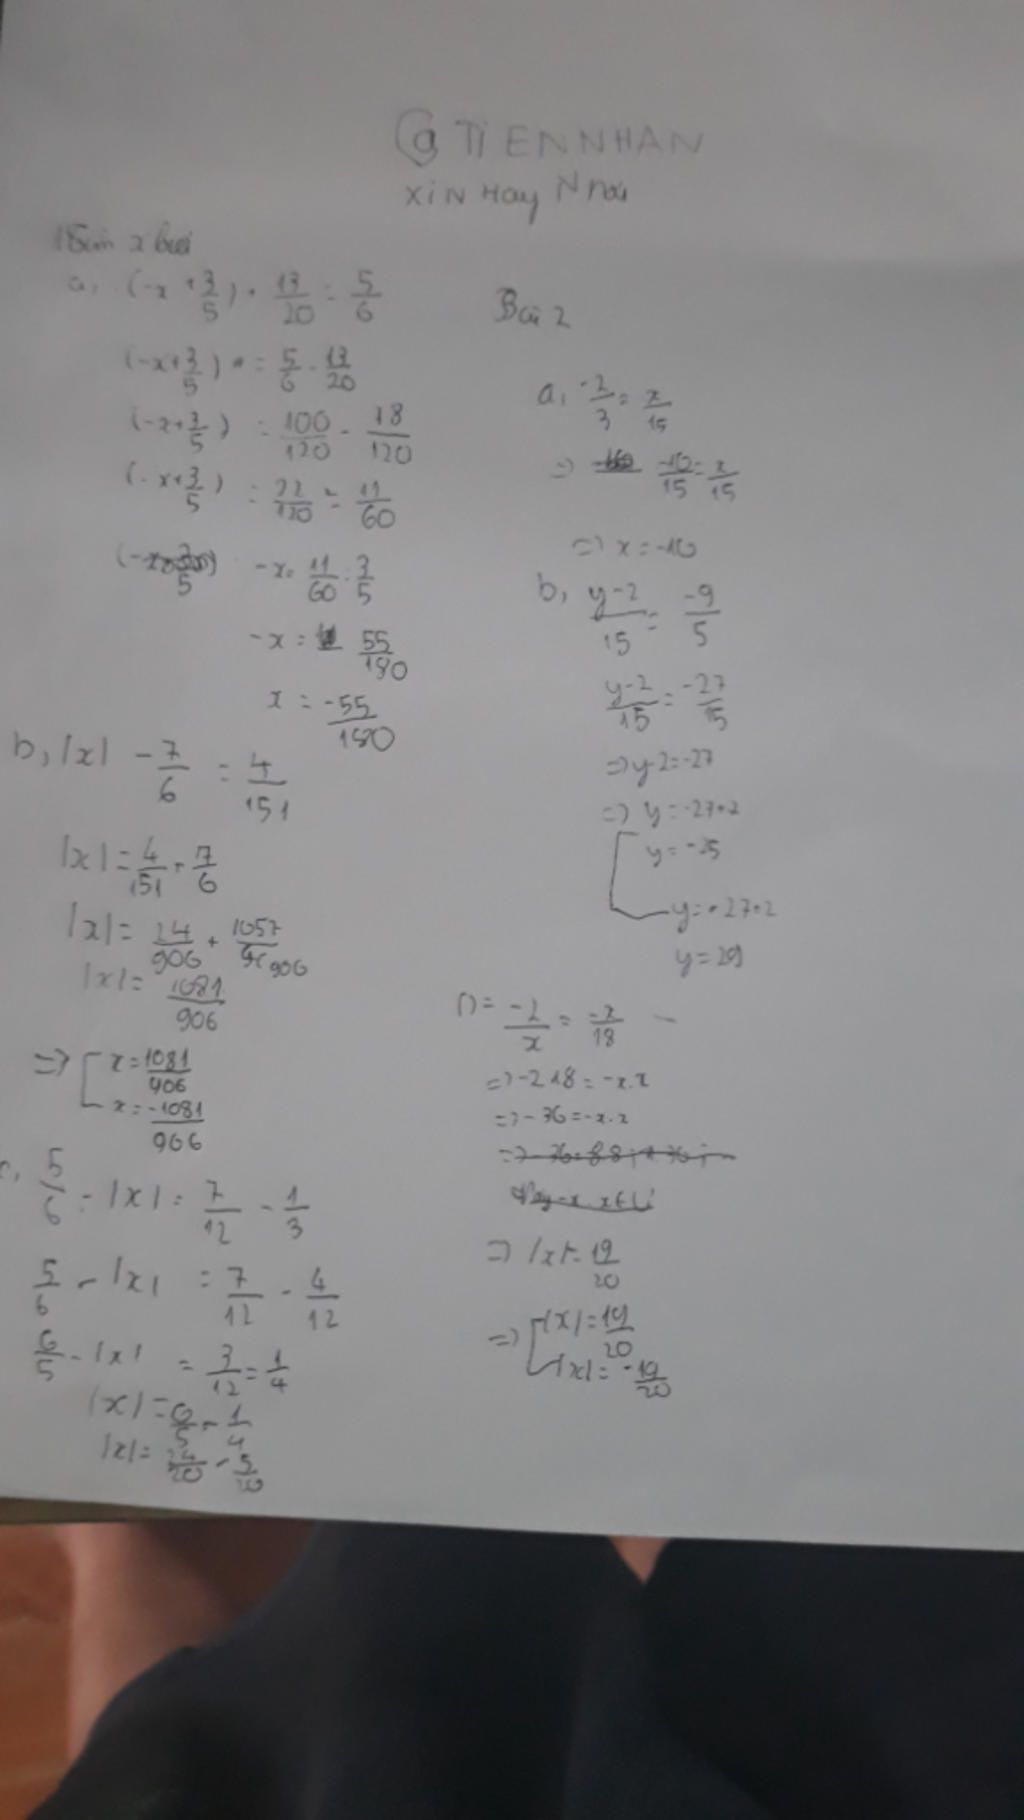 @ TIENNHAN
XIN Hay N
a, (-x + 3/5) · 13/20 = 5/6
(-x + 3/5) = 5/6 - 13/20
(-x + 3/5) = 100/120 - 18/120
(-x + 3/5) = 22/120 = 11/60
-x = 11/60 : 3/5
-x = 55/180
x = -55/180
b, |x| - 7/6 = 4/151
|x| = 4/151 + 7/6
|x| = 24/906 + 1057/906
|x| = 1081/906
=> [ x = 1081/906
x = -1081/906
c, 5/6 - |x| = 7/12 - 1/3
5/6 - |x| = 7/12 - 4/12
6/5 - |x| = 3/12 = 1/4
|x| = 6/5 - 1/4
|x| = 24/20 - 5/20
Bài 2
a, -2/3 = x/15
=> -10/15 = x/15
=> x = -10
b, y-2/15 = -9/5
y-2/15 = -27/15
=> y-2 = -27
=> y = -27+2
[ y = -25
y = -27+2
y = 29
-2/x = -x/18
=> -2.18 = -x.x
=> -36 = -x.x
=> |x| = 19/20
=> [ |x| = 19/20
|x| = -19/20